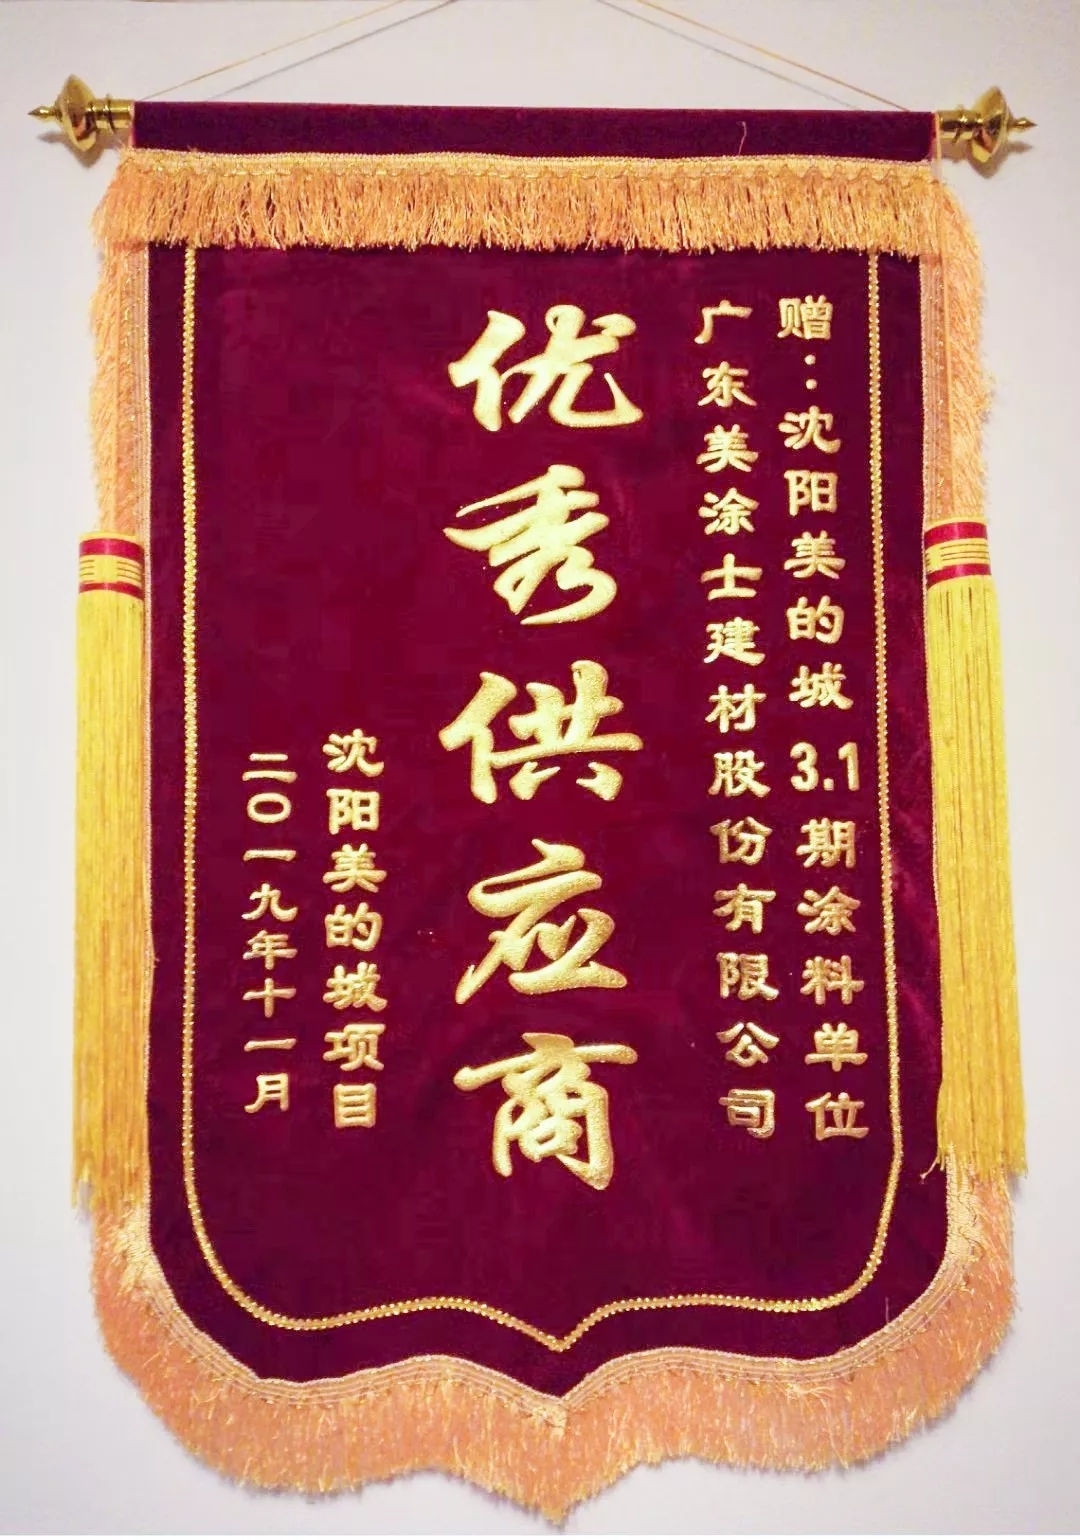 赠：沈阳美的城 3.1 期涂料单位
广东美涂士建材股份有限公司
优秀供应商
沈阳美的城项目
二〇一九年十一月